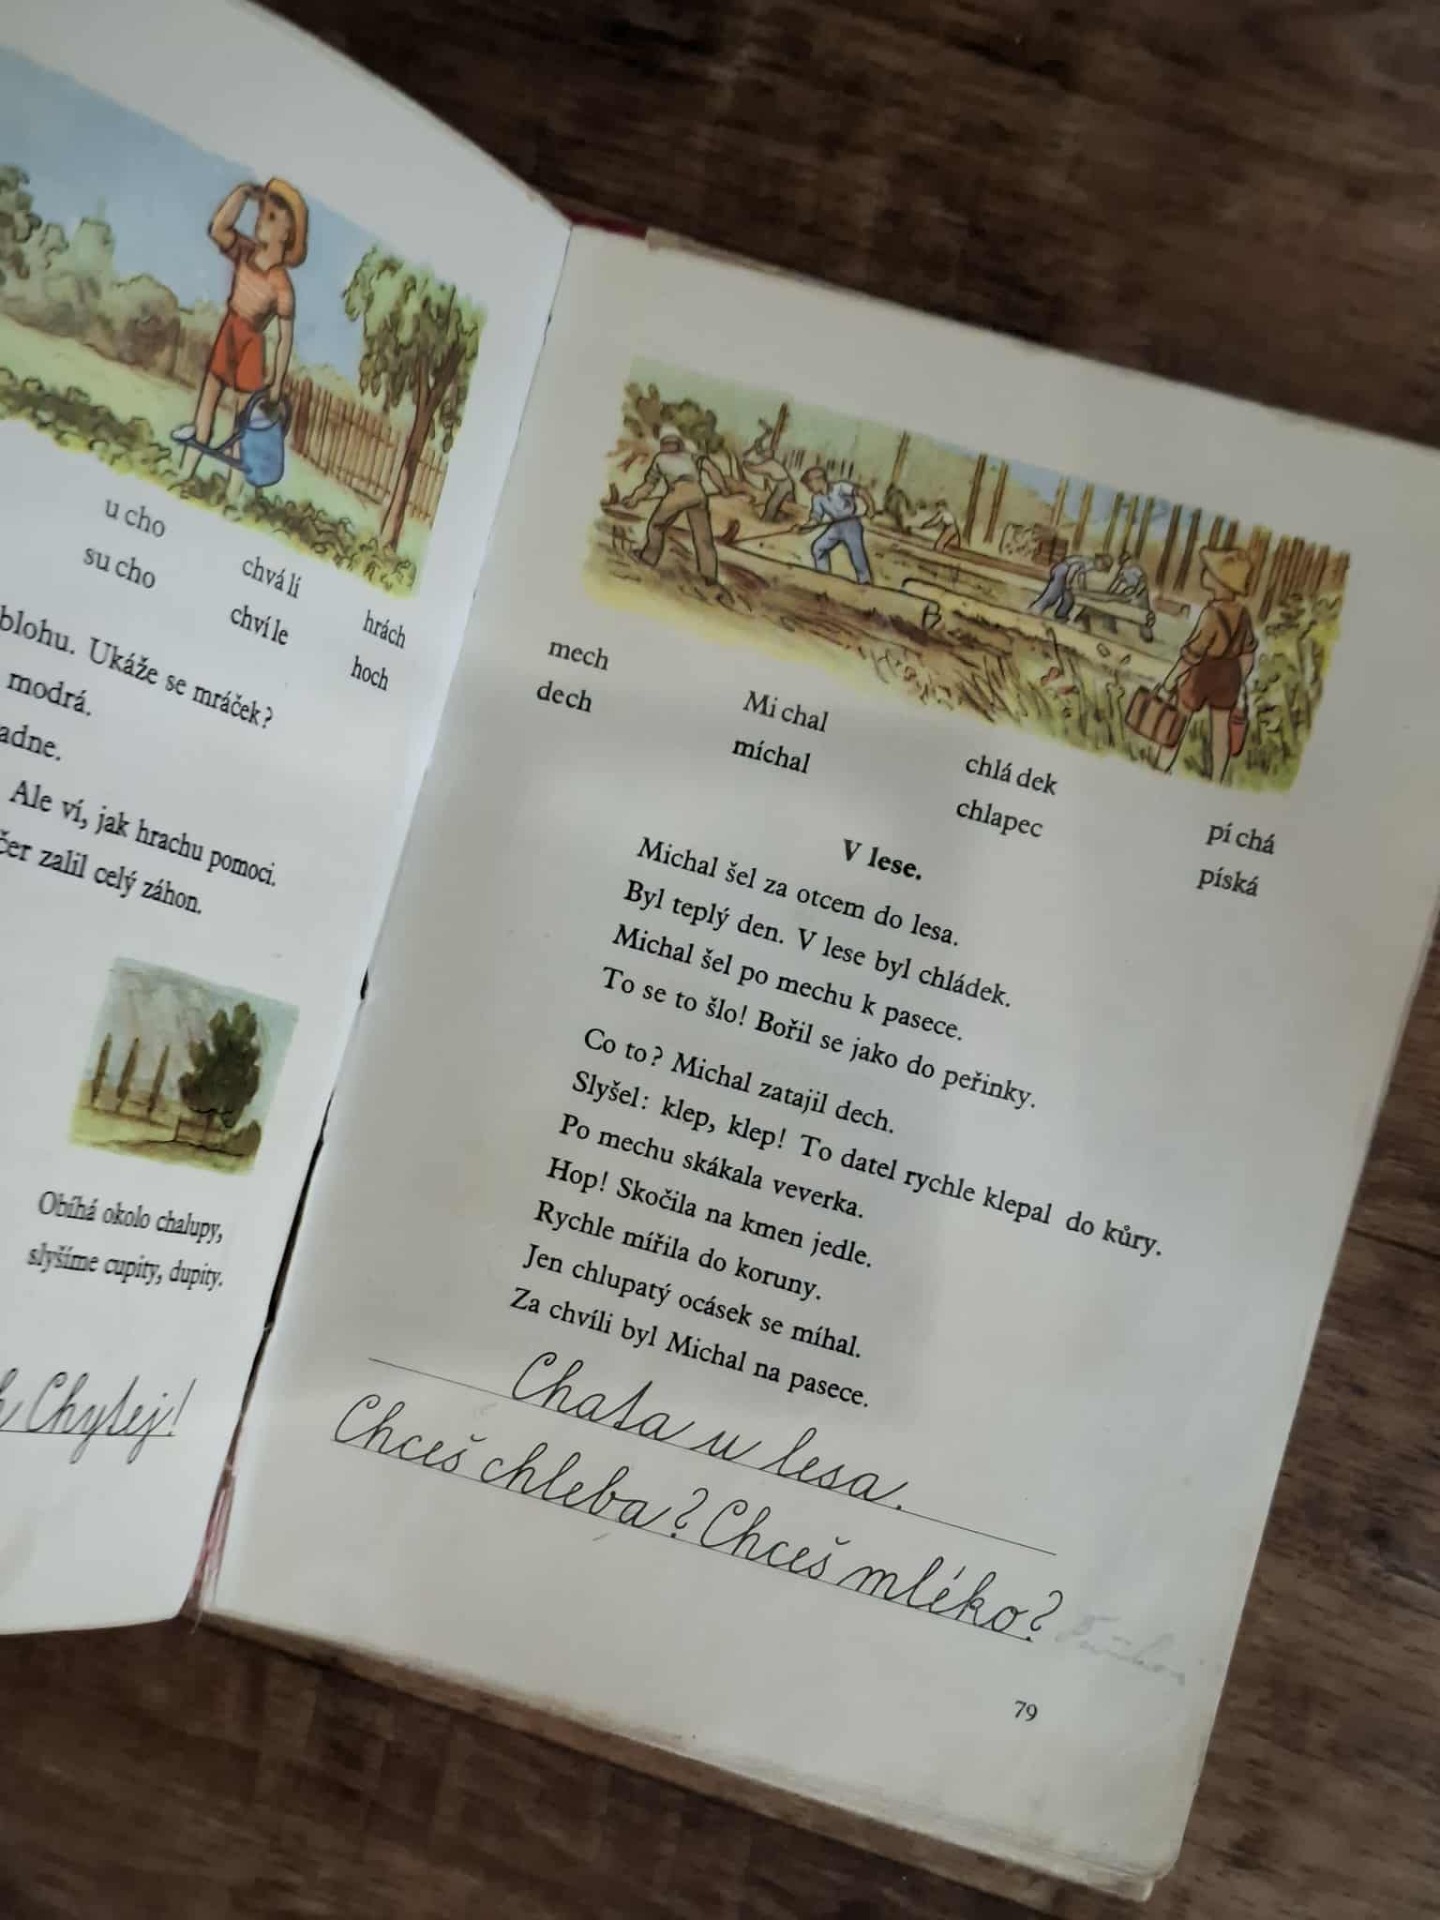 u cho
su cho
chvá lí
chvíle
hrách
hoch
blohu. Ukáže se mráček?
modrá.
adne.
Ale ví, jak hrachu pomoci.
čer zalil celý záhon.
Obíhá okolo chalupy,
slyšíme cupity, dupity.
Chytej!
mech
dech
Mi chal
míchal
chlá dek
chlapec
pí chá
píská
V lese.
Michal šel za otcem do lesa.
Byl teplý den. V lese byl chládek.
Michal šel po mechu k pasece.
To se to šlo! Bořil se jako do peřinky.
Co to? Michal zatajil dech.
Slyšel: klep, klep! To datel rychle klepal do kůry.
Po mechu skákala veverka.
Hop! Skočila na kmen jedle.
Rychle mířila do koruny.
Jen chlupatý ocásek se míhal.
Za chvíli byl Michal na pasece.
Chata u lesa.
Chceš chleba? Chceš mléko?
79